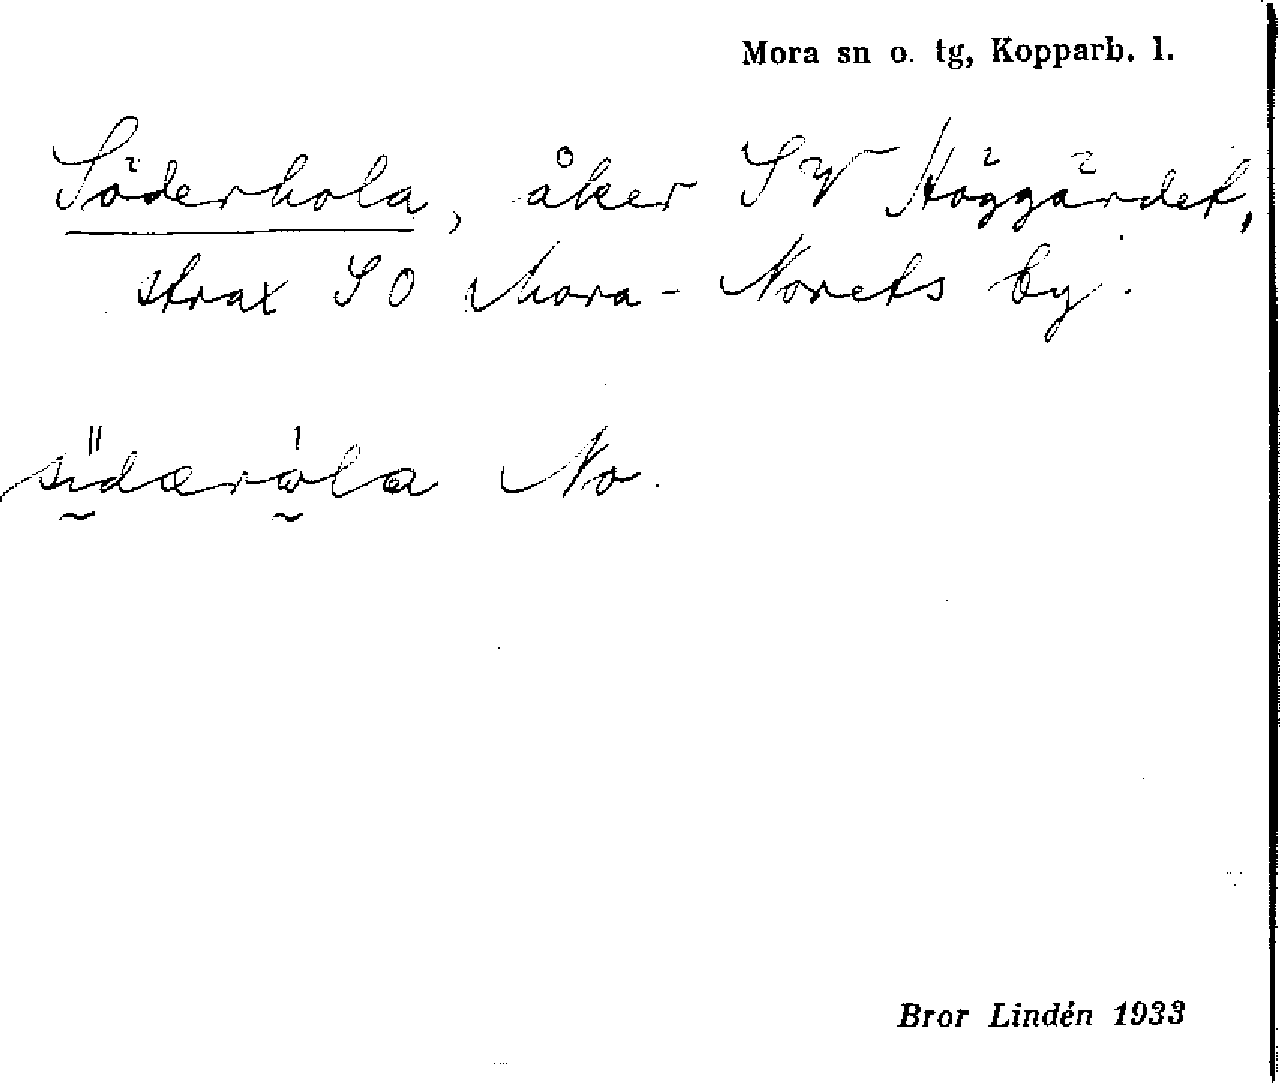 Mora sn o. tg, Kopparb. l.
Söderhola, åker SV Höggärdet,
strax SO Mora-Norets by.
No.
Bror Lindén 1933